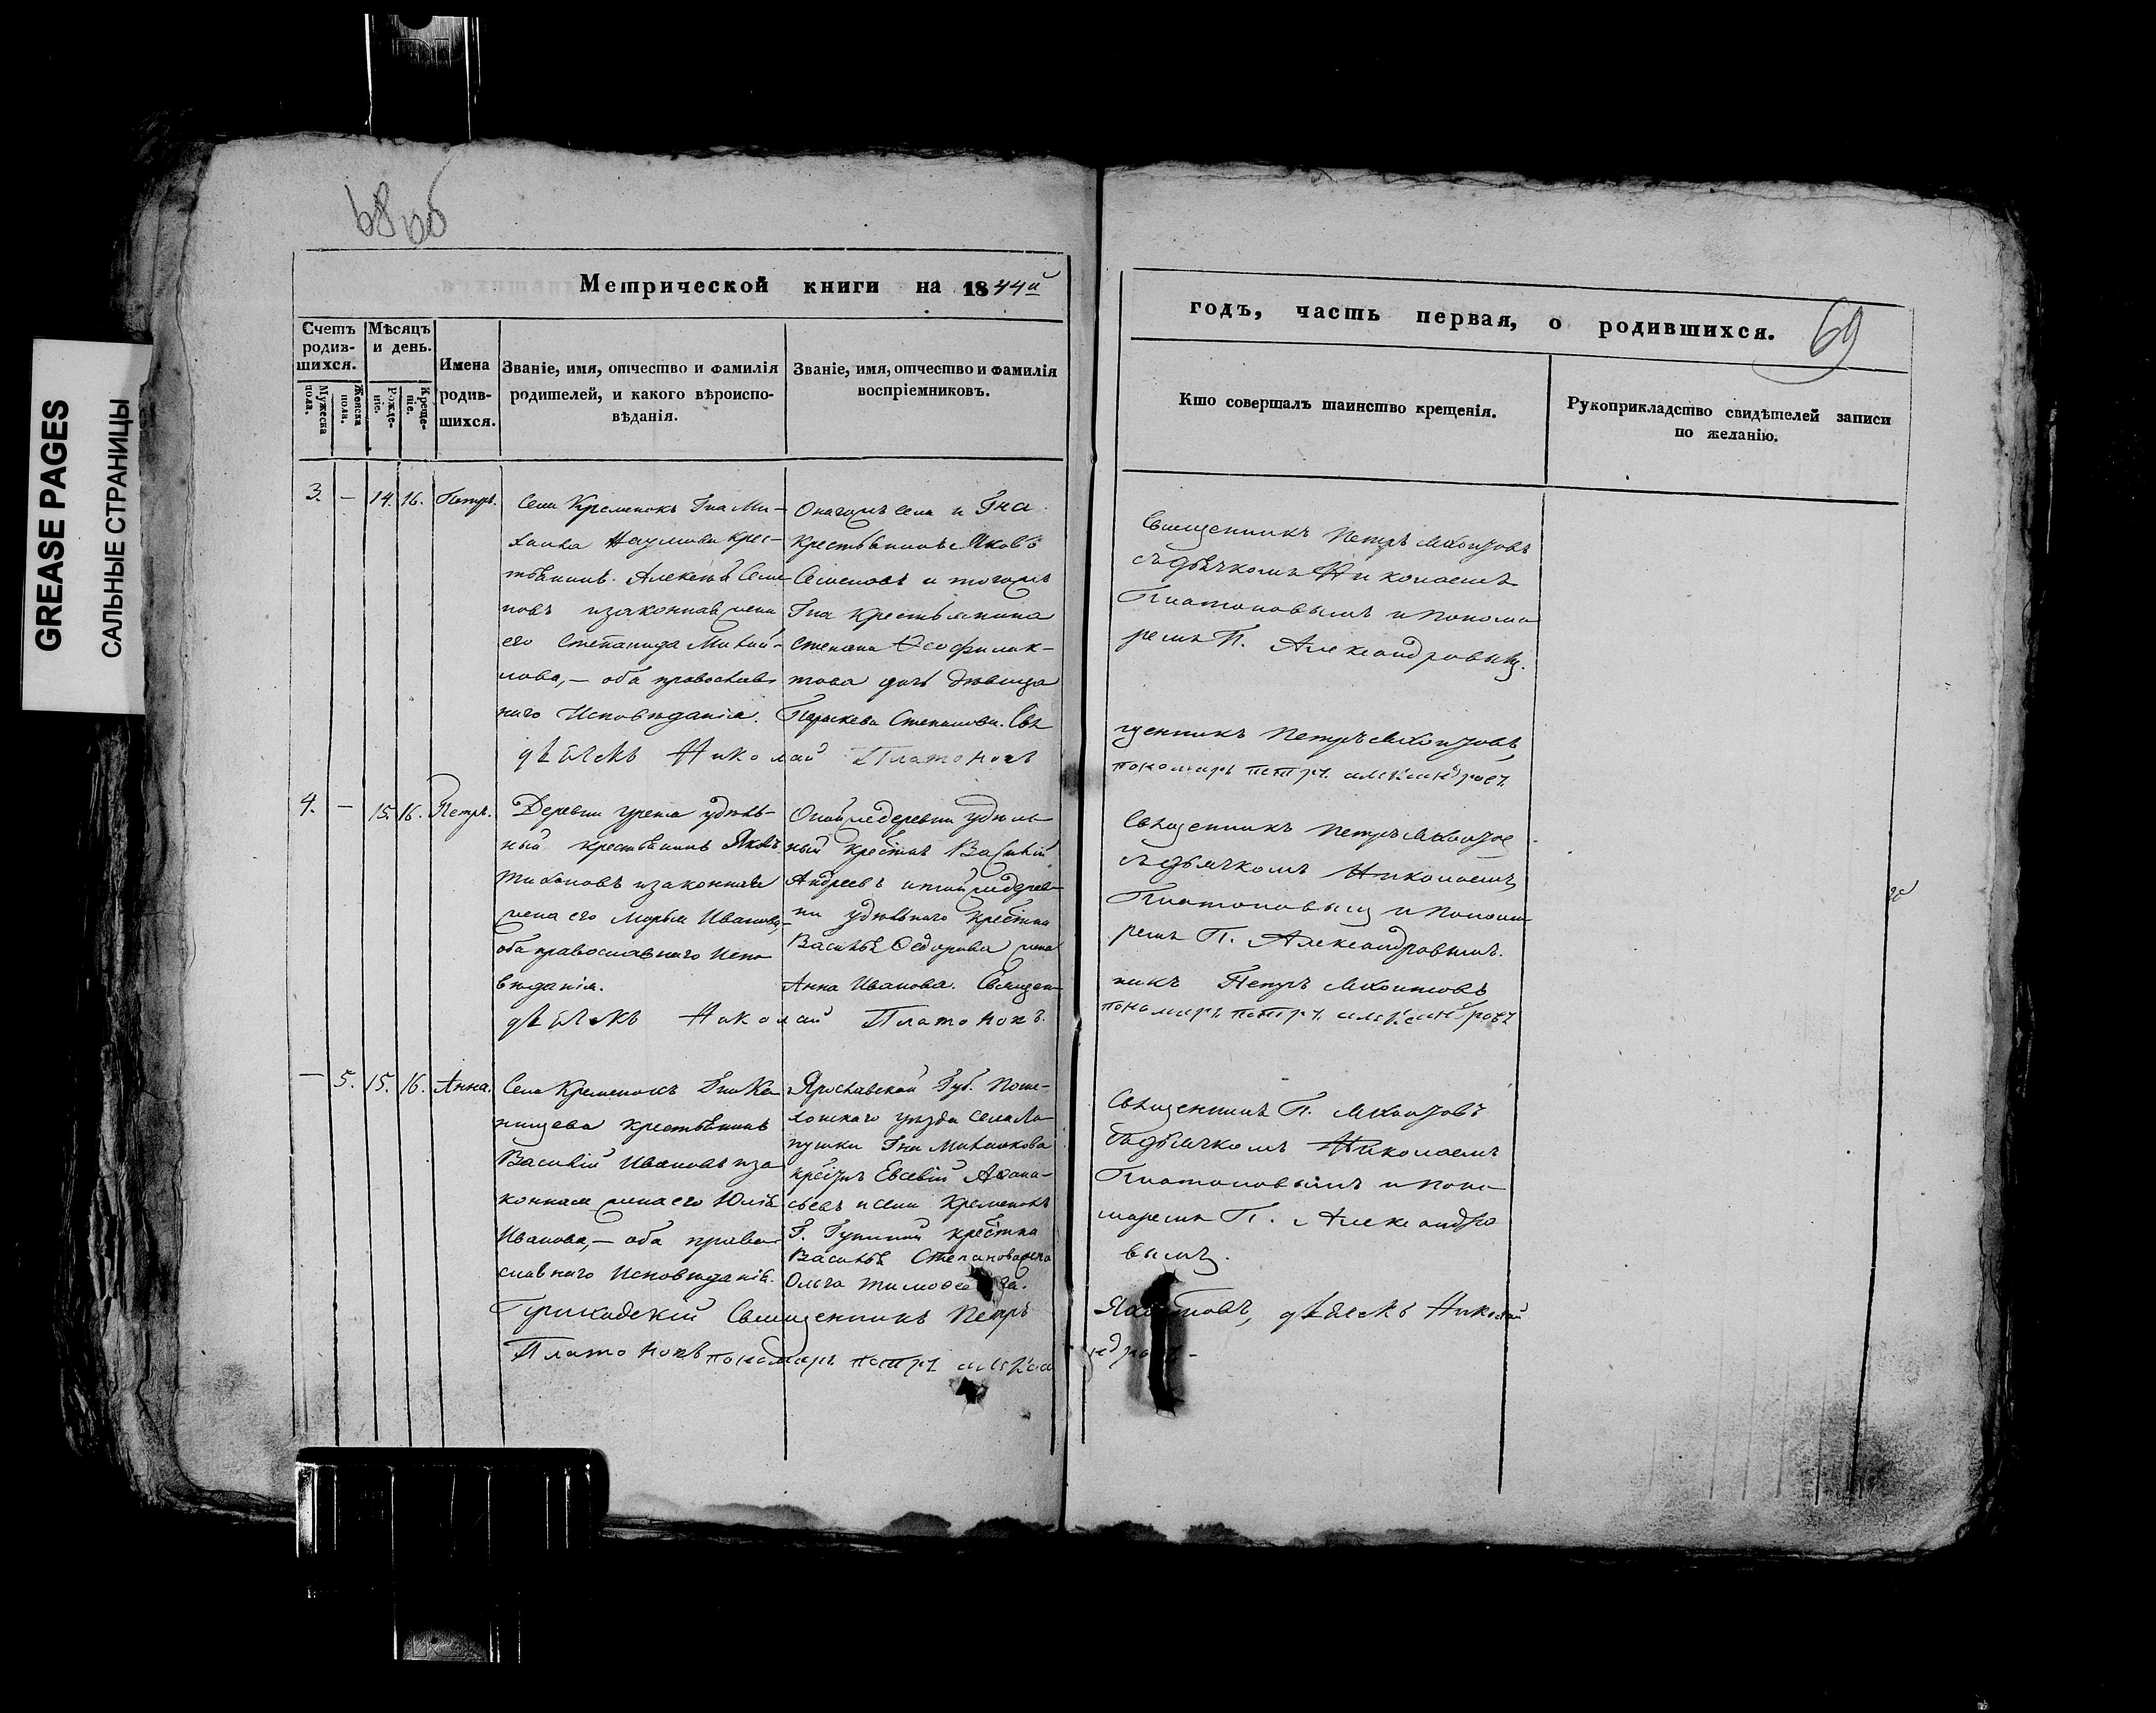 68 об
GREASE PAGES
САЛЬНЫЕ СТРАНИЦЫ
Метрической книги на 1844й
годъ, часть первая, о родившихся.
69
Счетъ родив-
шихся.
Мужеска пола.
Женска пола.
Мѣсяцъ
и день.
Рожде-
ніе.
Креще-
ніе.
Имена
родив-
шихся.
Званіе, имя, отчество и фамилія
родителей, и какого вѣроиспо-
вѣданія.
Званіе, имя, отчество и фамилія
воспріемниковъ.
Кто совершалъ таинство крещенія.
Рукоприкладство свидѣтелей записи
по желанію.
3. — 14. 16. Петръ.
Села Кременокъ Гна Ми-
Наумова крес-
тьянинъ Алексѣй Семе
новъ и законная жена
его Степанида Михай-
лова, — оба православ
наго Исповѣданія.
Онагожъ села и Гна
Крестьянинъ Яковъ
Семеновъ и тогожъ
Гна крестьянина
Степана Ѳеофилак-
това дочь дѣвица
Параскева Степанова. Свя
Священникъ Петръ
съ дьячкомъ Николаемъ
Платоновымъ и понома
ремъ П. Александровымъ.
щенникъ Петръ
дьячекъ Николай Платоновъ
пономарь петръ александровъ
4. — 15. 16. Петръ.
Деревни удѣль-
ный крестьянинъ Яковъ
Тихоновъ и законная
жена его Марья Иванова,
оба православнаго Испо
вѣданія.
Онойже деревни удѣль
ный крестьян Василій
Андреевъ и тойже дерев-
ни удѣльнаго крестьна
Василья Ѳедорова жена
Анна Иванова. Священ
Священникъ Петръ
съ дьячкомъ Николаемъ
Платоновымъ и понома
ремъ П. Александровымъ.
никъ Петръ
дьячекъ Николай Платоновъ.
пономарь петръ александровъ
— 5. 15. 16. Анна.
Села Кременокъ Гна Ка
пищева крестьянинъ
Василій Ивановъ и за
конная жена его Юлія
Иванова, — оба право
славнаго Исповѣданія.
Ярославской Губ. Поше-
хонскаго уѣзда села Ло
пушки Гна
Евсевій Аѳана-
сьевъ и села Кременокъ
Г. крестьна
Василья Степанова жена
Ольга Тимоѳеева.
Священникъ П.
съ дьячкомъ Николаемъ
Платоновымъ и поно
маремъ П. Александро
вымъ.
Приходскій Священникъ Петръ
дьячекъ Николай
Платоновъ пономарь петръ алекса
ндровъ